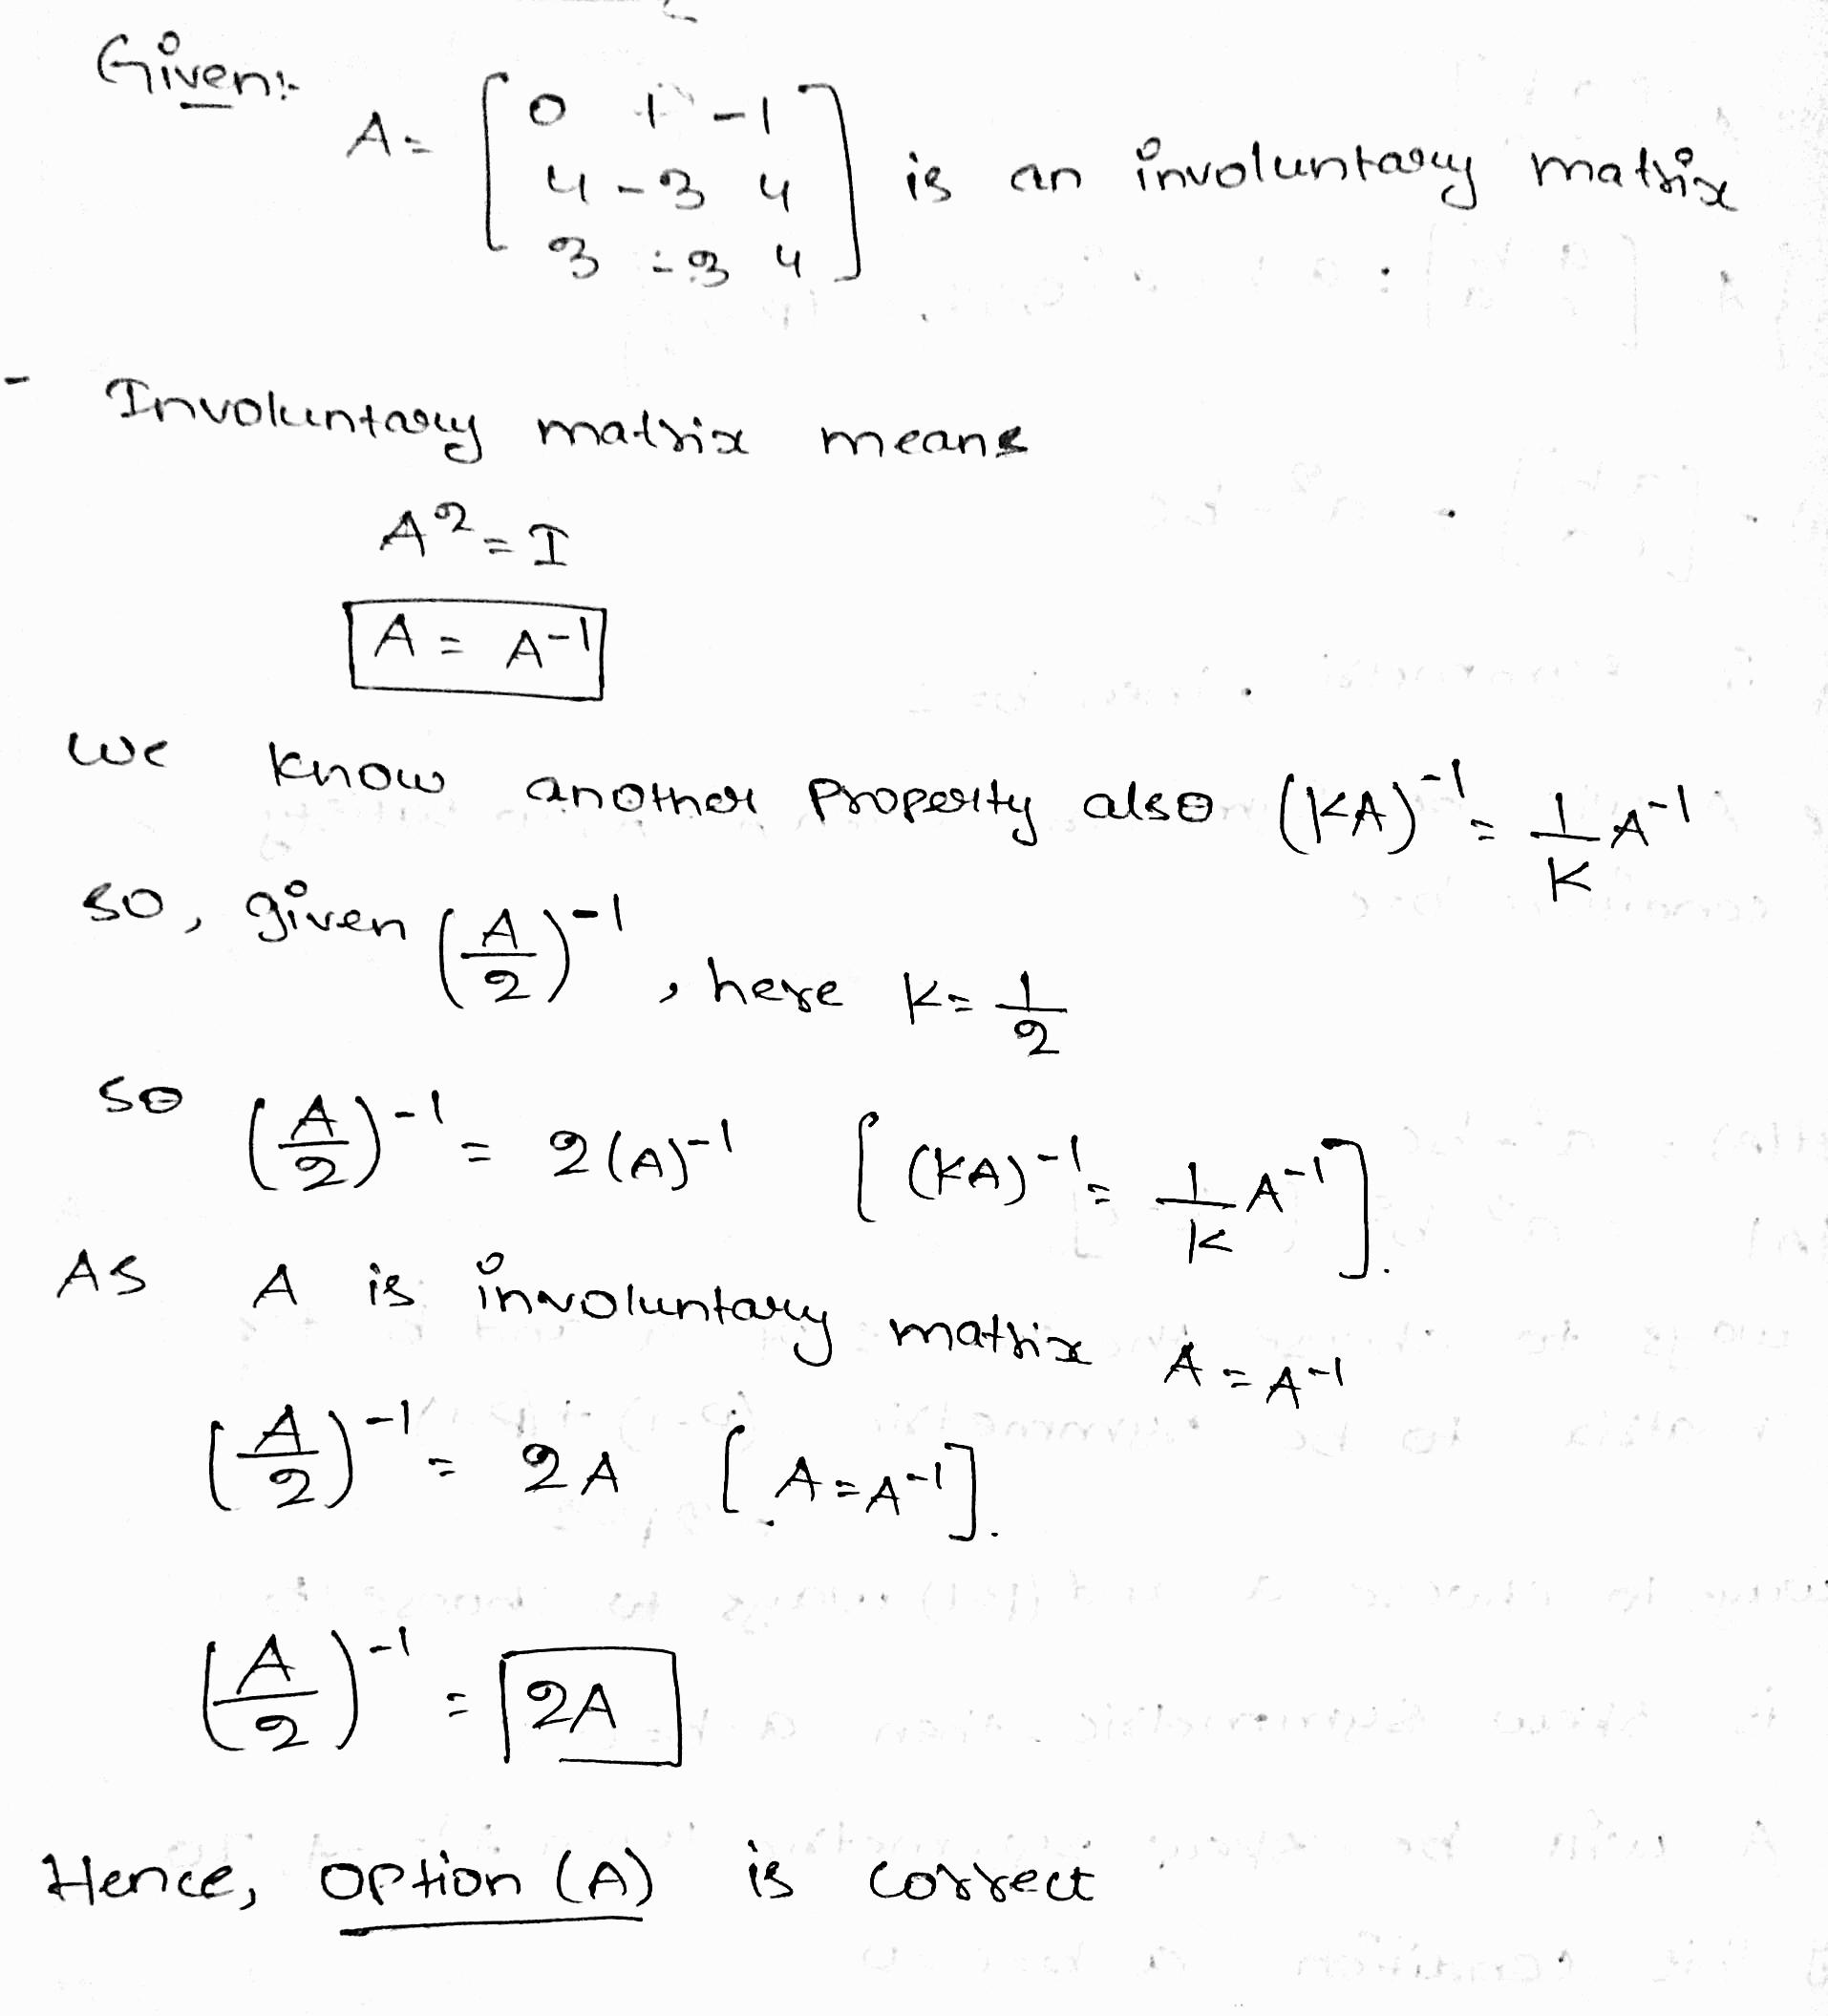 Given:-
A = [ 0 1 -1
4 -3 4
3 -3 4 ] is an involuntary matrix
- Involuntary matrix means
A² = I
A = A⁻¹
we know another property also (KA)⁻¹ = 1/K A⁻¹
so, given (A/2)⁻¹, here K = 1/2
so (A/2)⁻¹ = 2(A)⁻¹ [(KA)⁻¹ = 1/K A⁻¹].
As A is involuntary matrix A = A⁻¹
(A/2)⁻¹ = 2A [A = A⁻¹].
(A/2)⁻¹ = 2A
Hence, option (A) is correct